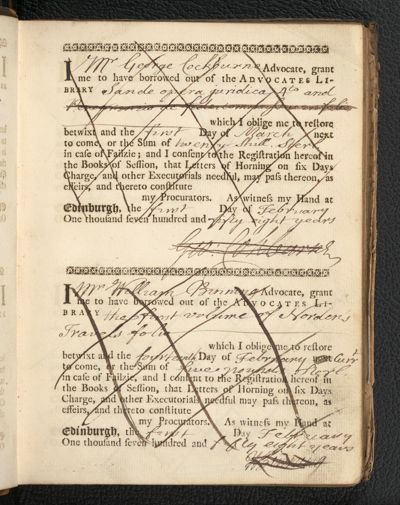 I Mr George Cockburne Advocate, grant
me to have borrowed out of the ADVOCATES LI-
BRARY Sande opera juridica 4to and
which I oblige me to restore
betwixt and the first Day of March next
to come, or the Sum of twenty shill. Sterl
in case of Failzie; and I consent to the Registration hereof in
the Books of Session, that Letters of Horning on six Days
Charge, and other Executorials needful, may pass thereon, as
effeirs, and thereto constitute
my Procurators. As witness my Hand at
Edinburgh, the first Day of February
One thousand seven hundred and fifty eight years
Geo Cockburne
I Mr William Binning Advocate, grant
me to have borrowed out of the ADVOCATES LI-
BRARY the first volume of Nordens
Travels folio
which I oblige me to restore
betwixt and the fourteenth Day of February next Curr
to come, or the Sum of five pounds Sterl
in case of Failzie, and I consent to the Registration hereof in
the Books of Session, that Letters of Horning on six Days
Charge, and other Executorials needful, may pass thereon, as
effeirs, and thereto constitute
my Procurators. As witness my Hand at
Edinburgh, the first Day February
One thousand seven hundred and fifty eight years